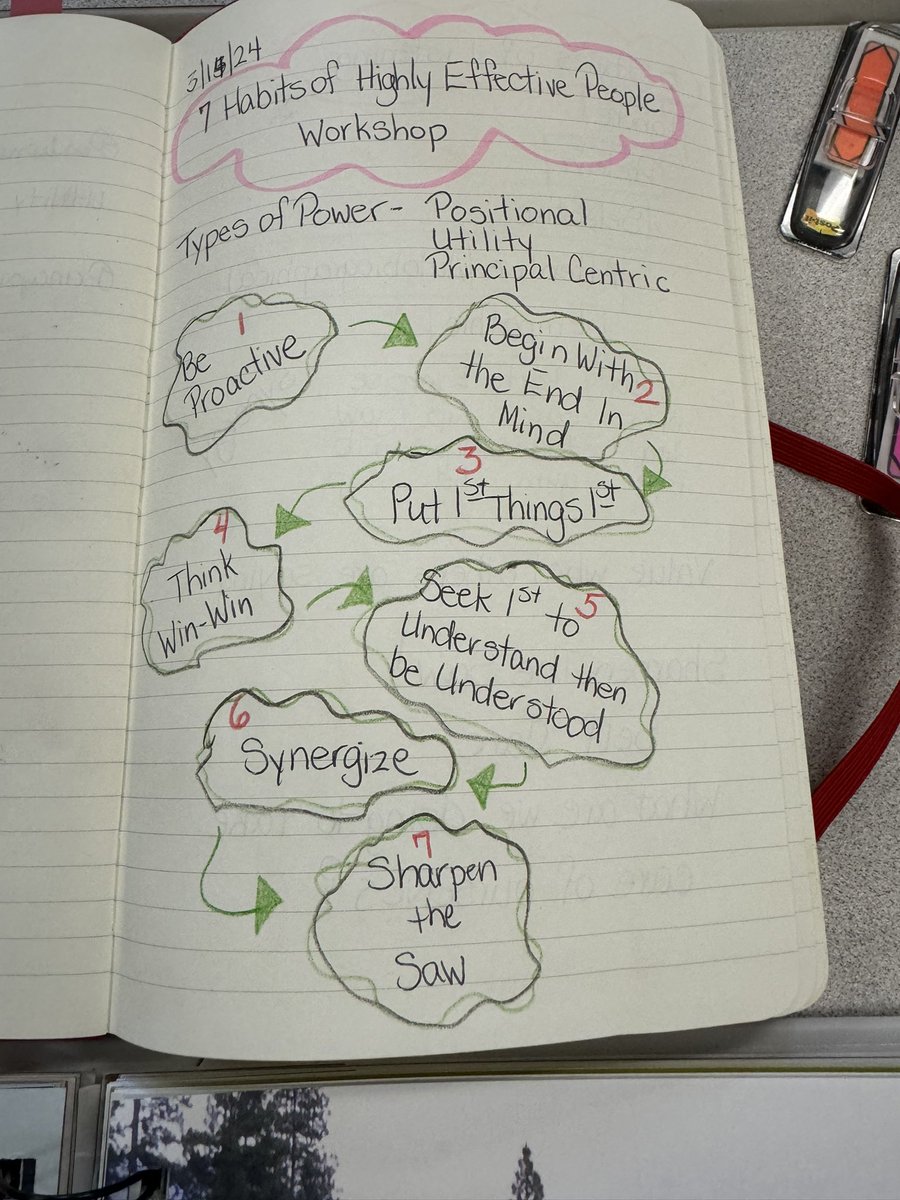 3/15/24
7 Habits of Highly Effective People
Workshop
Types of Power- Positional
Utility
Principal Centric
1
Be
Proactive
Begin With 2
the End In
Mind
3
Put 1st Things 1st
4
Think
Win-Win
Seek 1st to 5
Understand then
be Understood
6
Synergize
7
Sharpen
the
Saw
Post-it